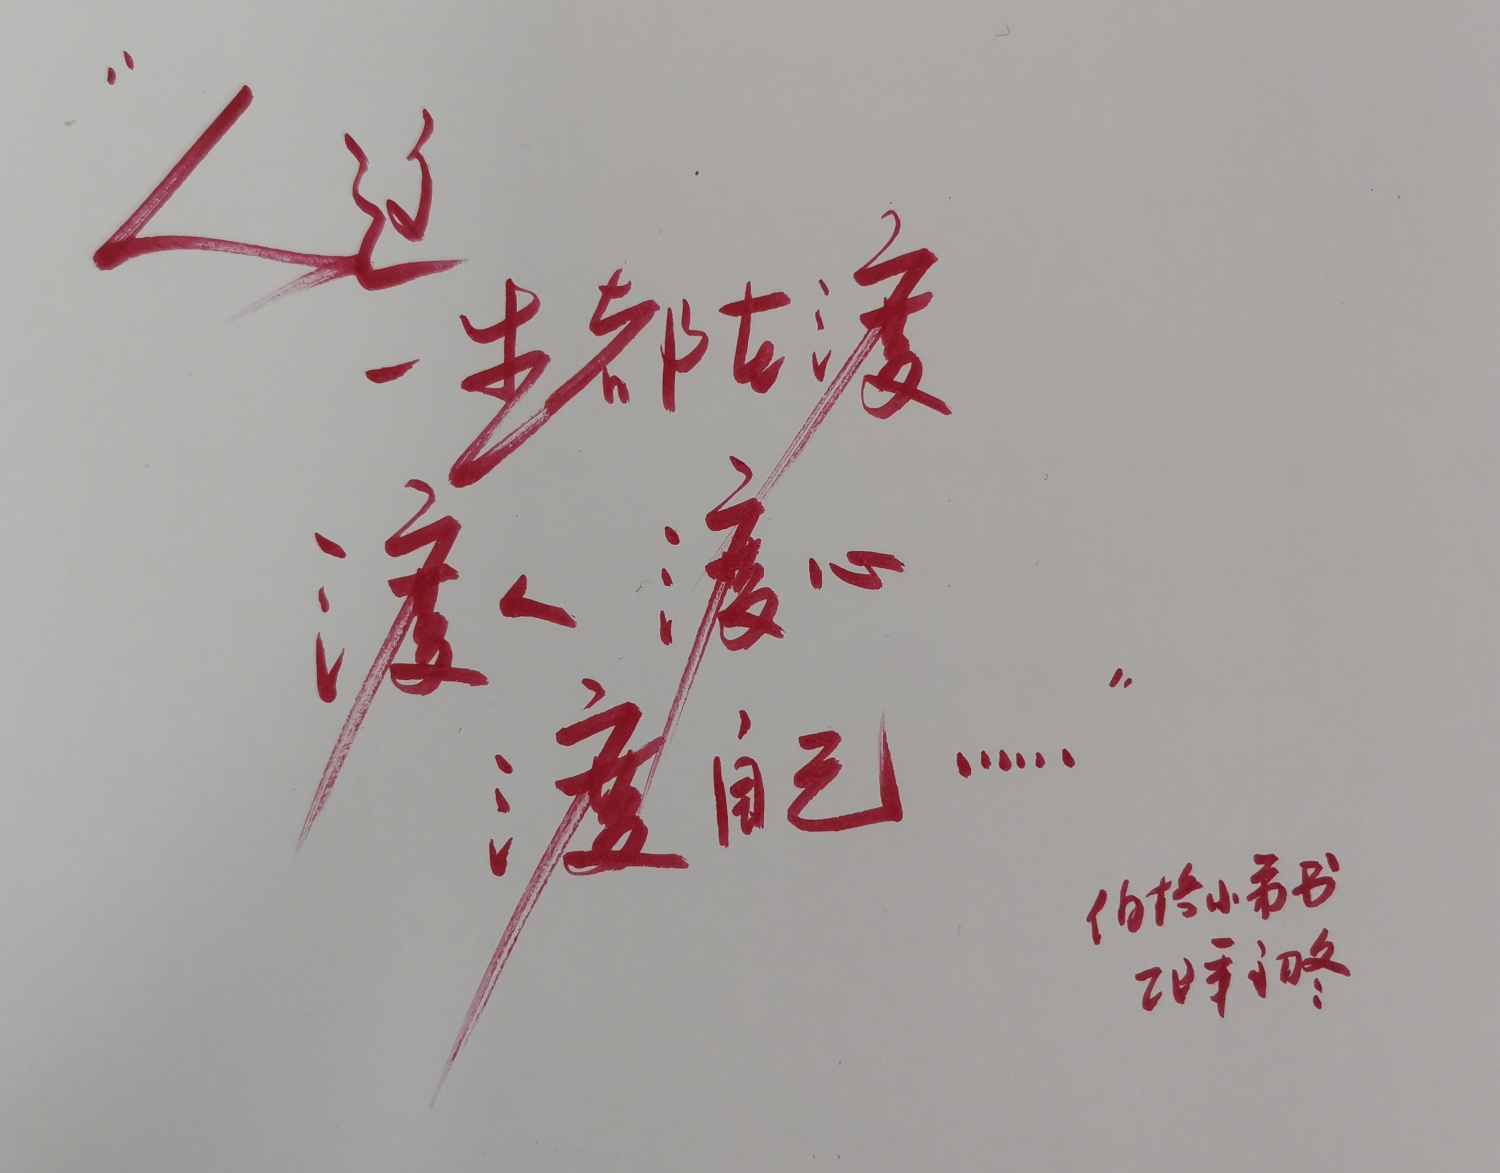 “人这
一生都在渡
渡人 渡心
渡自己……”
伯格小弟书
初冬